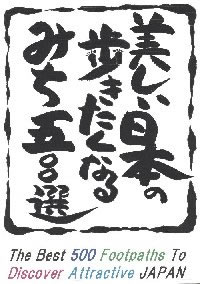 美しい日本の
歩きたくなる
みち五〇〇選
The Best 500 Footpaths To
Discover Attractive JAPAN